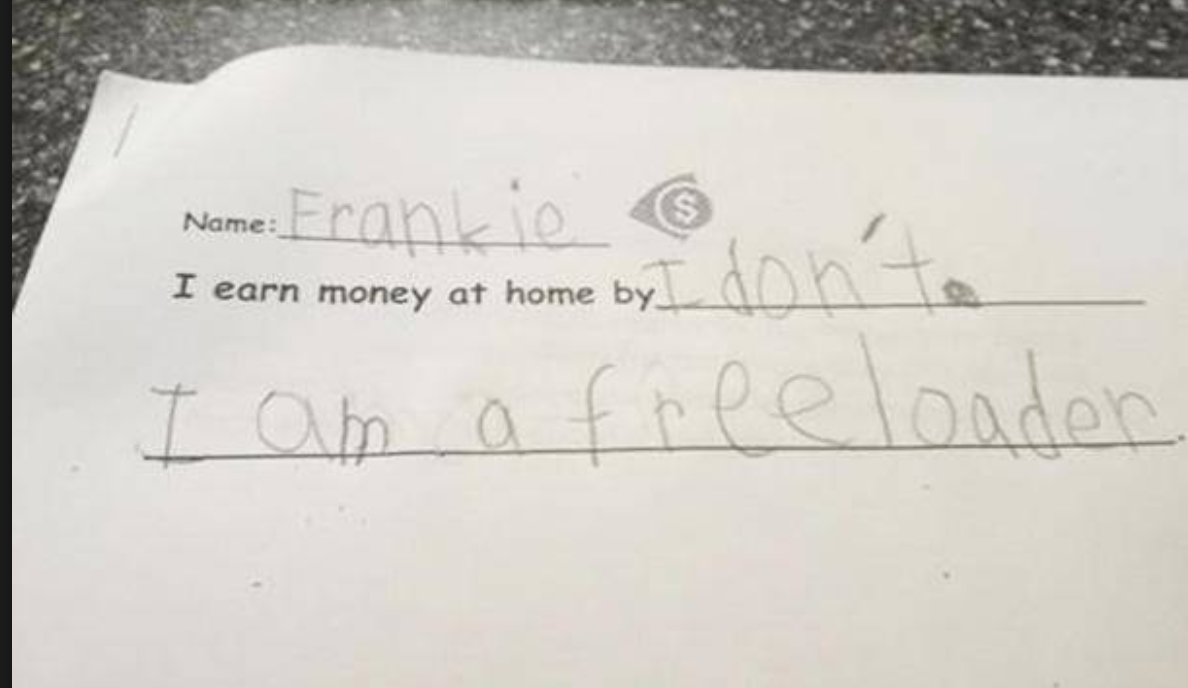 Name: Frankie $
I earn money at home by I don't.
I am a freeloader.